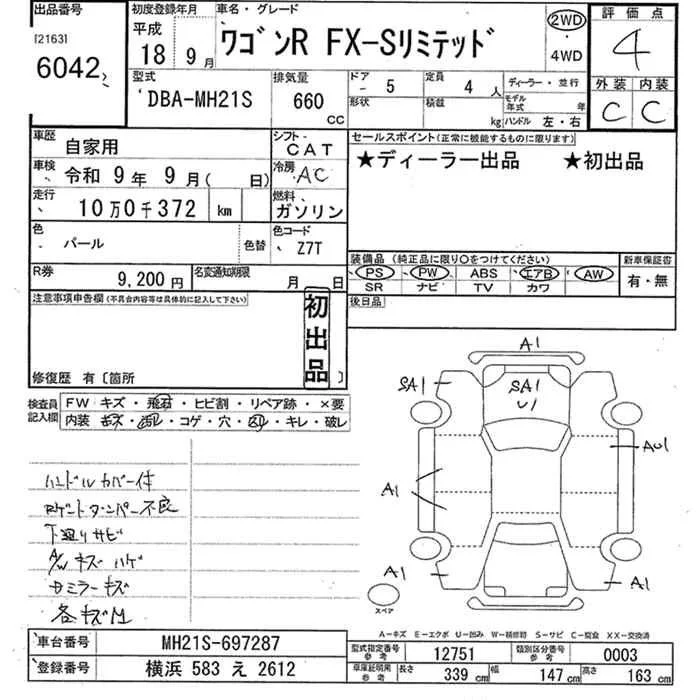 出品番号
[2163]
6042
初度登録年月
平成
18年 9月
車名・グレード
ワゴンR FX-Sリミテッド
2WD
・
4WD
評価点
4
外装 内装
C C
型式
DBA-MH21S
排気量
660
CC
ドア
5
形状
定員
4 人
積載
kg
ディーラー・並行
モデル年式 年
ハンドル 左・右
車歴
自家用
シフト
CAT
車検
令和 9年 9月( 日)
冷房
AC
走行
10万0千372 km
燃料
ガソリン
色
パール
色替
色コード
Z7T
R券
9,200円
名変通知期限
月 日
セールスポイント(正常に機能するものに限ります)
★ディーラー出品 ★初出品
装備品 (純正品に限り○をつけてください)
PS PW ABS エアB AW
SR ナビ TV カワ
新車保証書
有・無
後日品
注意事項申告欄(不具合内容等は具体的に記入して下さい)
初出品
修復歴 有〔箇所 〕
検査員記入欄
FW キズ・飛石・ヒビ割・リペア跡・×要
内装 キズ・汚れ・コゲ・穴・凹・キレ・破レ
ハンドルカバー付
Rケントダンパー不良
下廻りサビ
A/W キズハゲ
サミラーキズ
各キズM
A1
SA1
SA1
U1
AU1
A1
A1
A1
スペア
A-キズ E-エクボ U-凹み W-補修跡 S-サビ C-腐食 XX-交換済
車台番号
MH21S-697287
登録番号
横浜 583 え 2612
型式指定番号
参考
12751
類別区分番号
参考
0003
車庫証明用
参考
長さ 339 cm
幅 147 cm
高さ 163 cm